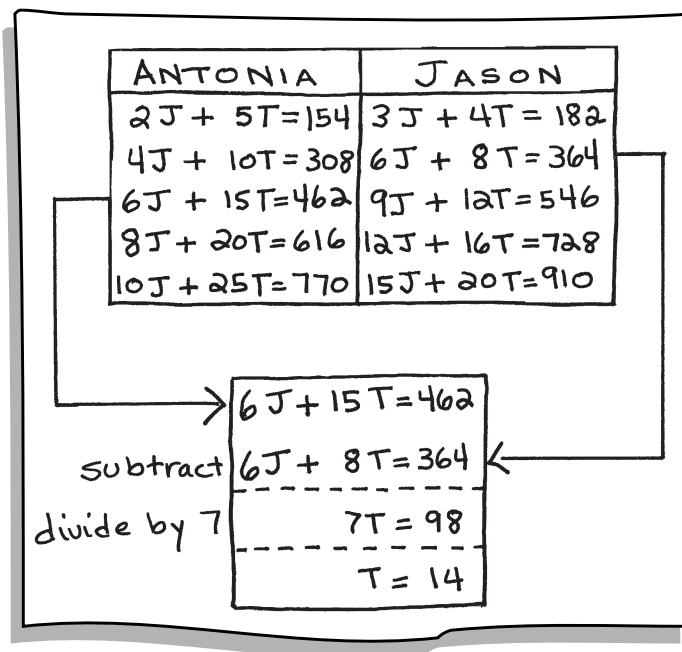 ANTONIA JASON
2J + 5T=154 3J + 4T = 182
4J + 10T=308 6J + 8T=364
6J + 15T=462 9J + 12T=546
8J + 20T=616 12J + 16T=728
10J + 25T=770 15J + 20T=910
6J + 15T=462
subtract 6J + 8T=364
divide by 7 7T = 98
T = 14